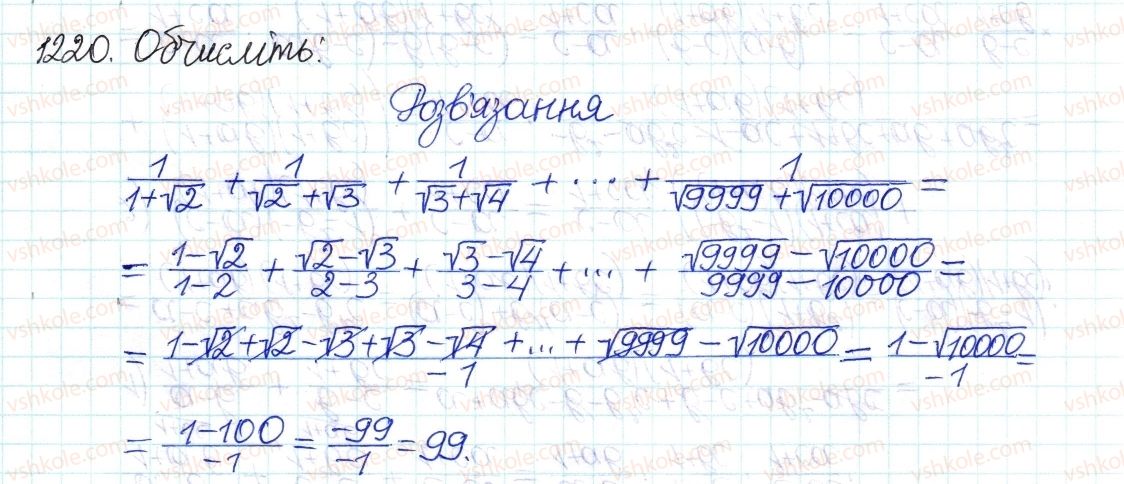 1220. Обчисліть:
Розв'язання
1/(1+√2) + 1/(√2+√3) + 1/(√3+√4) + ... + 1/(√9999+√10000) =
= (1-√2)/(1-2) + (√2-√3)/(2-3) + (√3-√4)/(3-4) + ... + (√9999-√10000)/(9999-10000) =
= (1-√2+√2-√3+√3-√4+...+√9999-√10000)/(-1) = (1-√10000)/(-1) =
= (1-100)/(-1) = (-99)/(-1) = 99.